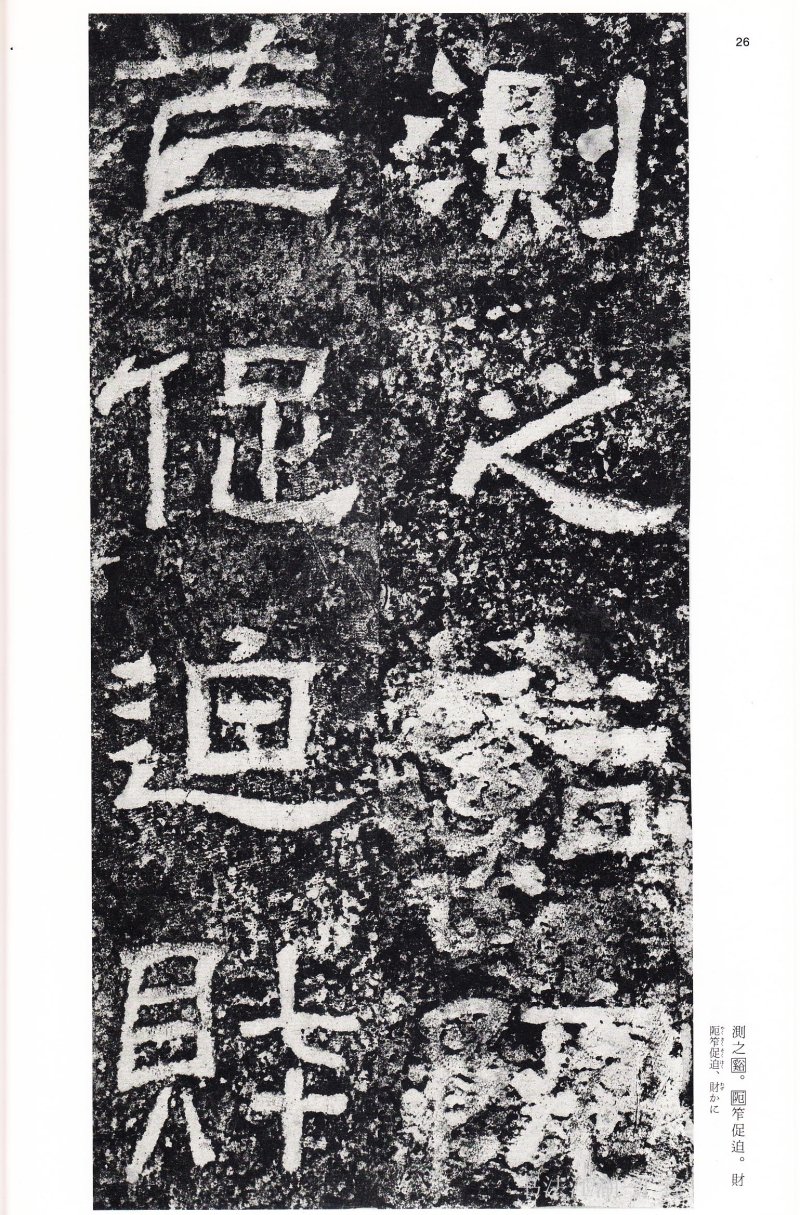 26
測之谿阨
笮促迫財
測之谿。阨笮促迫。財
阨笮促迫、財かに